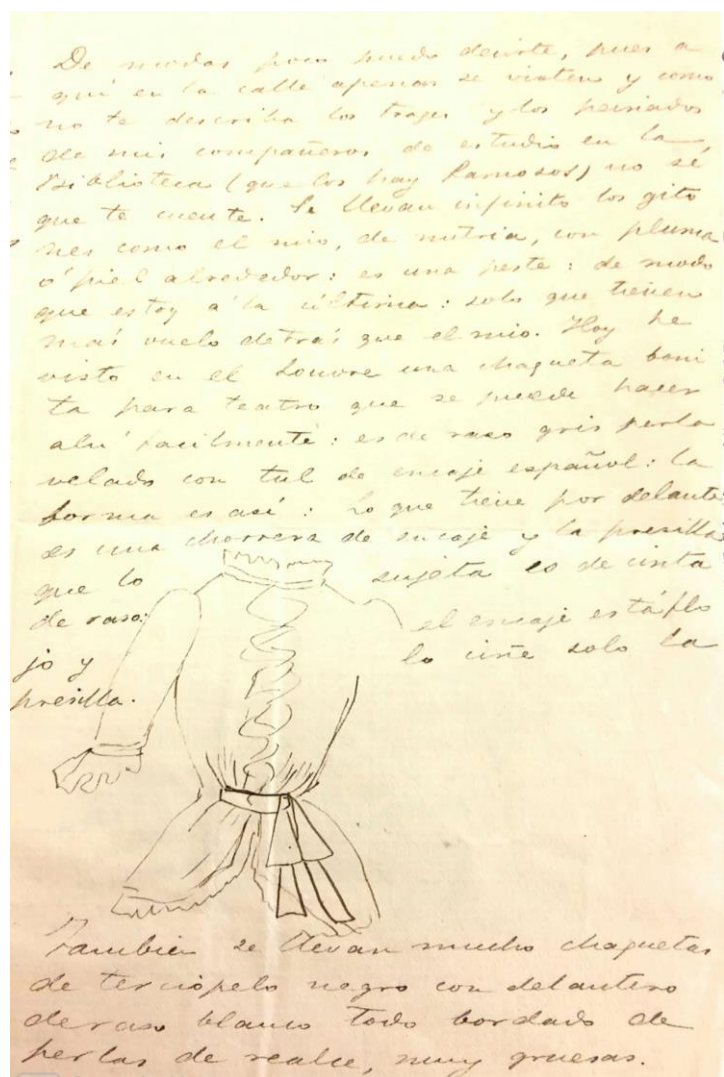 De modas poco puedo decirte, pues a
quí en la calle apenas se visten y como
no te describa los trajes y los peinados
de mis compañeros de estudio en la
Biblioteca (que los hay famosos) no sé
que te cuente. Se llevan infinito los gito
nes como el mio, de nutria, con pluma
ó piel alrededor: es una peste: de modo
que estoy á la última: solo que tienen
más vuelo detrás que el mio. Hoy he
visto en el Louvre una chaqueta boni
ta para teatro que se puede hacer
ahí facilmente: es de raso gris perla
velado con tul de encaje español: la
forma es así: Lo que tiene por delante
es una chorrera de encaje y la presilla
que lo sujeta es de cinta
de raso: el encaje está flo
jo y lo ciñe solo la
presilla.
Tambien se llevan mucho chaquetas
de terciopelo negro con delantero
de raso blanco todo bordado de
perlas de realce, muy gruesas.